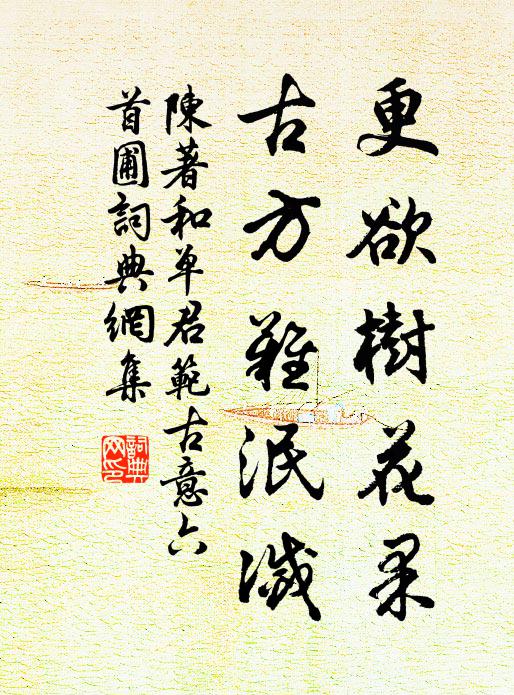 更欲樹花果
古方難泯滅
陳著和單君範古意六
首圃詞典網集
詞典
网印